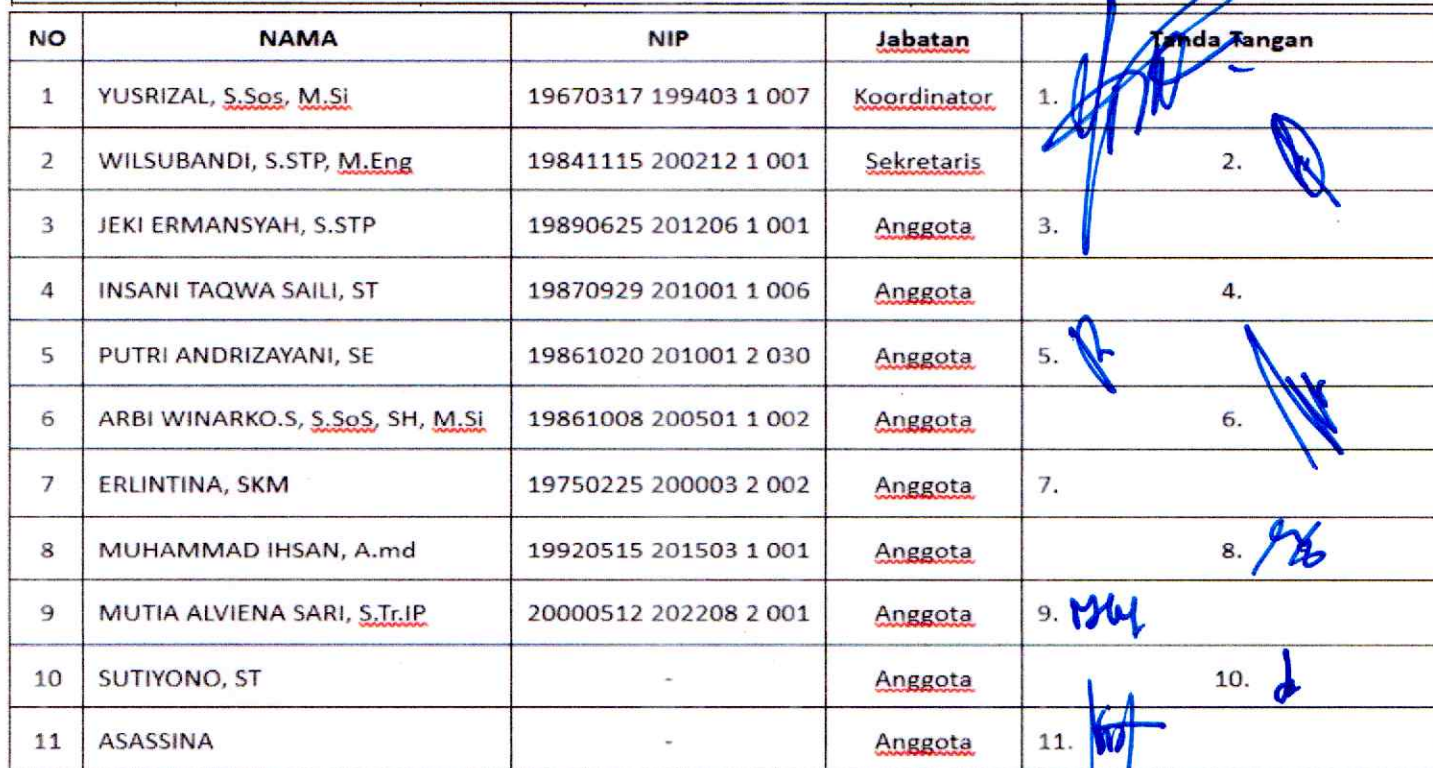 NO NAMA NIP Jabatan Tanda Tangan
1 YUSRIZAL, S.Sos, M.Si 19670317 199403 1 007 Koordinator 1.
2 WILSUBANDI, S.STP, M.Eng 19841115 200212 1 001 Sekretaris 2.
3 JEKI ERMANSYAH, S.STP 19890625 201206 1 001 Anggota 3.
4 INSANI TAQWA SAILI, ST 19870929 201001 1 006 Anggota 4.
5 PUTRI ANDRIZAYANI, SE 19861020 201001 2 030 Anggota 5.
6 ARBI WINARKO.S, S.SoS, SH, M.Si 19861008 200501 1 002 Anggota 6.
7 ERLINTINA, SKM 19750225 200003 2 002 Anggota 7.
8 MUHAMMAD IHSAN, A.md 19920515 201503 1 001 Anggota 8.
9 MUTIA ALVIENA SARI, S.Tr.IP 20000512 202208 2 001 Anggota 9.
10 SUTIYONO, ST - Anggota 10.
11 ASASSINA - Anggota 11.